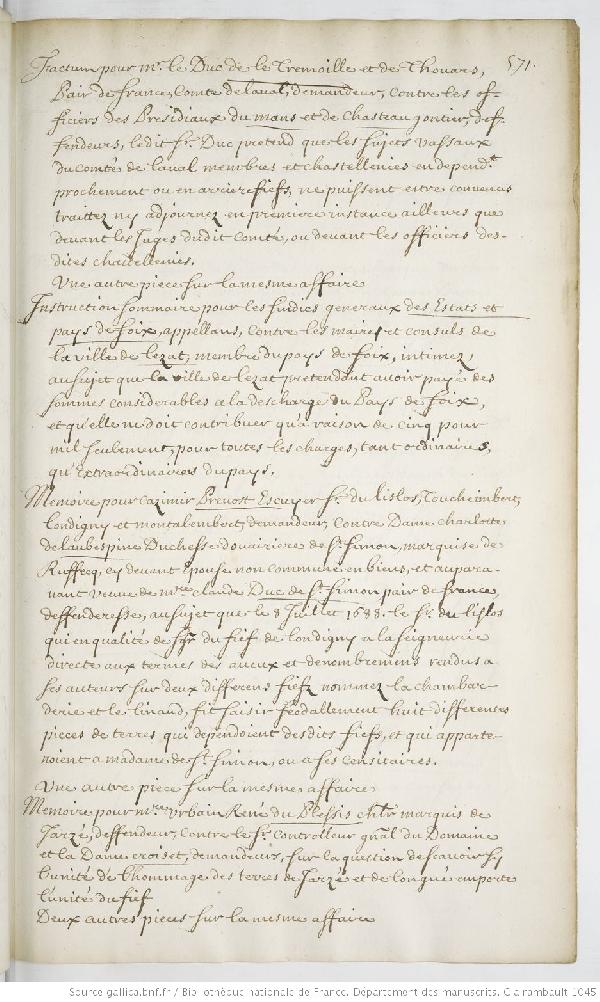 571.
Factum pour mr. le Duc de la Tremoille et de Thouars,
Pair de france, Comte de laval, demandeur, contre les of-
ficiers des Presidiaux du mans et de Chasteau gontier, def-
fendeurs, ledit sr. Duc pretend que les sujets vassaux
du comté de laval membres et chastellenies en depend.t
prochement ou en arriere fiefs, ne puissent estre convenus
traittez ny adjournez en premiere instance ailleurs que
devant les Juges dudit Comté, ou devant les officiers des-
dites chastellenies.
Une autre piece sur la mesme affaire
Instruction sommaire pour les sindics generaux des Estats et
pays de foix, appellans, contre les maires et consuls de
la ville de lezat, membre du pays de foix, intimez,
au sujet que la ville de lezat pretendant avoir payé des
sommes considerables a la descharge du Pays de foix,
et qu'elle ne doit contribuer qu'a raison de cinq pour
mil seulement, pour toutes les charges, tant ordinaires,
qu'extraordinaires du pays.
Memoire pour Cazimir Prevost Escuyer sr. du lislos, Toucheimbert,
londigny et montalembert, demandeur, contre Dame charlotte
de laubespine Duchesse douairiere de st. Simon, marquise de
Ruffecq, cy devant Epouse non commune en biens, et aupara-
nant veuve de mre. claude Duc de st. simon pair de france,
deffenderesse, au sujet que le 8 Juillet 1688. le sr. du lislos
qui en qualité de sgr. du fief de londigny a la seigneurie
directe aux termes des aveux et denombremens rendus a
ses auteurs sur deux differens fiefz nommez la chambar-
derie et le linaud, fit saisir féodallement huit differentes
pieces de terres qui dependoient desdits fiefs, et qui apparte-
noient a madame de st. simon, ou a ses censitaires.
Une autre piece sur la mesme affaire
Memoire pour mre. Urbain René du Plessis chlr. marquis de
Jarzé, deffendeur, contre le sr. controlleur gnal du Domaine
et la Dame croiset, demandeurs, sur la question de scavoir sy
l'unité de l'hommage des terres de Jarzé et de longué emporte
l'unité du fief
Deux autres pieces sur la mesme affaire
Source gallica.bnf.fr / Bibliothèque nationale de France. Département des manuscrits. Clairambault 1045